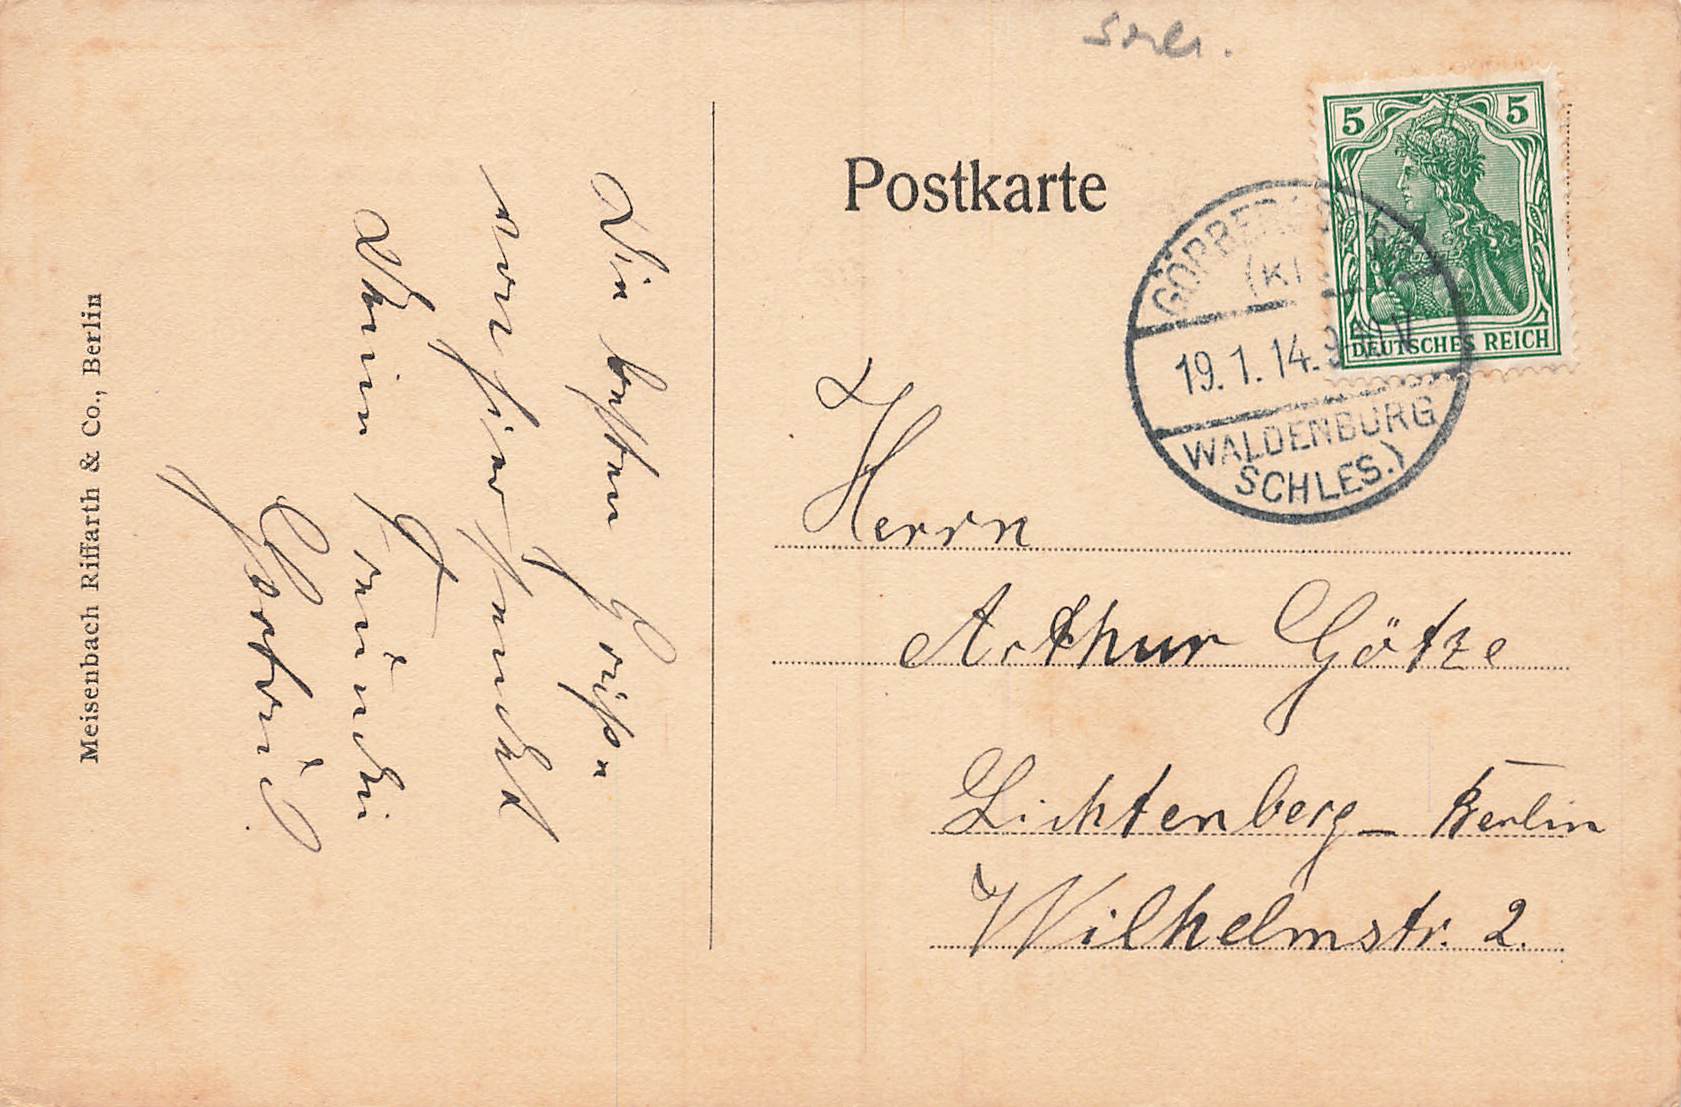 Postkarte
5 5
DEUTSCHES REICH
GÖRBERSDORF
19.1.14. 9-10 V
WALDENBURG
SCHLES.)
Herrn
Arthur Götze
Lichtenberg - Berlin
Wilhelmstr. 2.
Die besten Grüße
von hier sendet
Deine Freundin
Gertrud
Meisenbach Riffarth & Co., Berlin